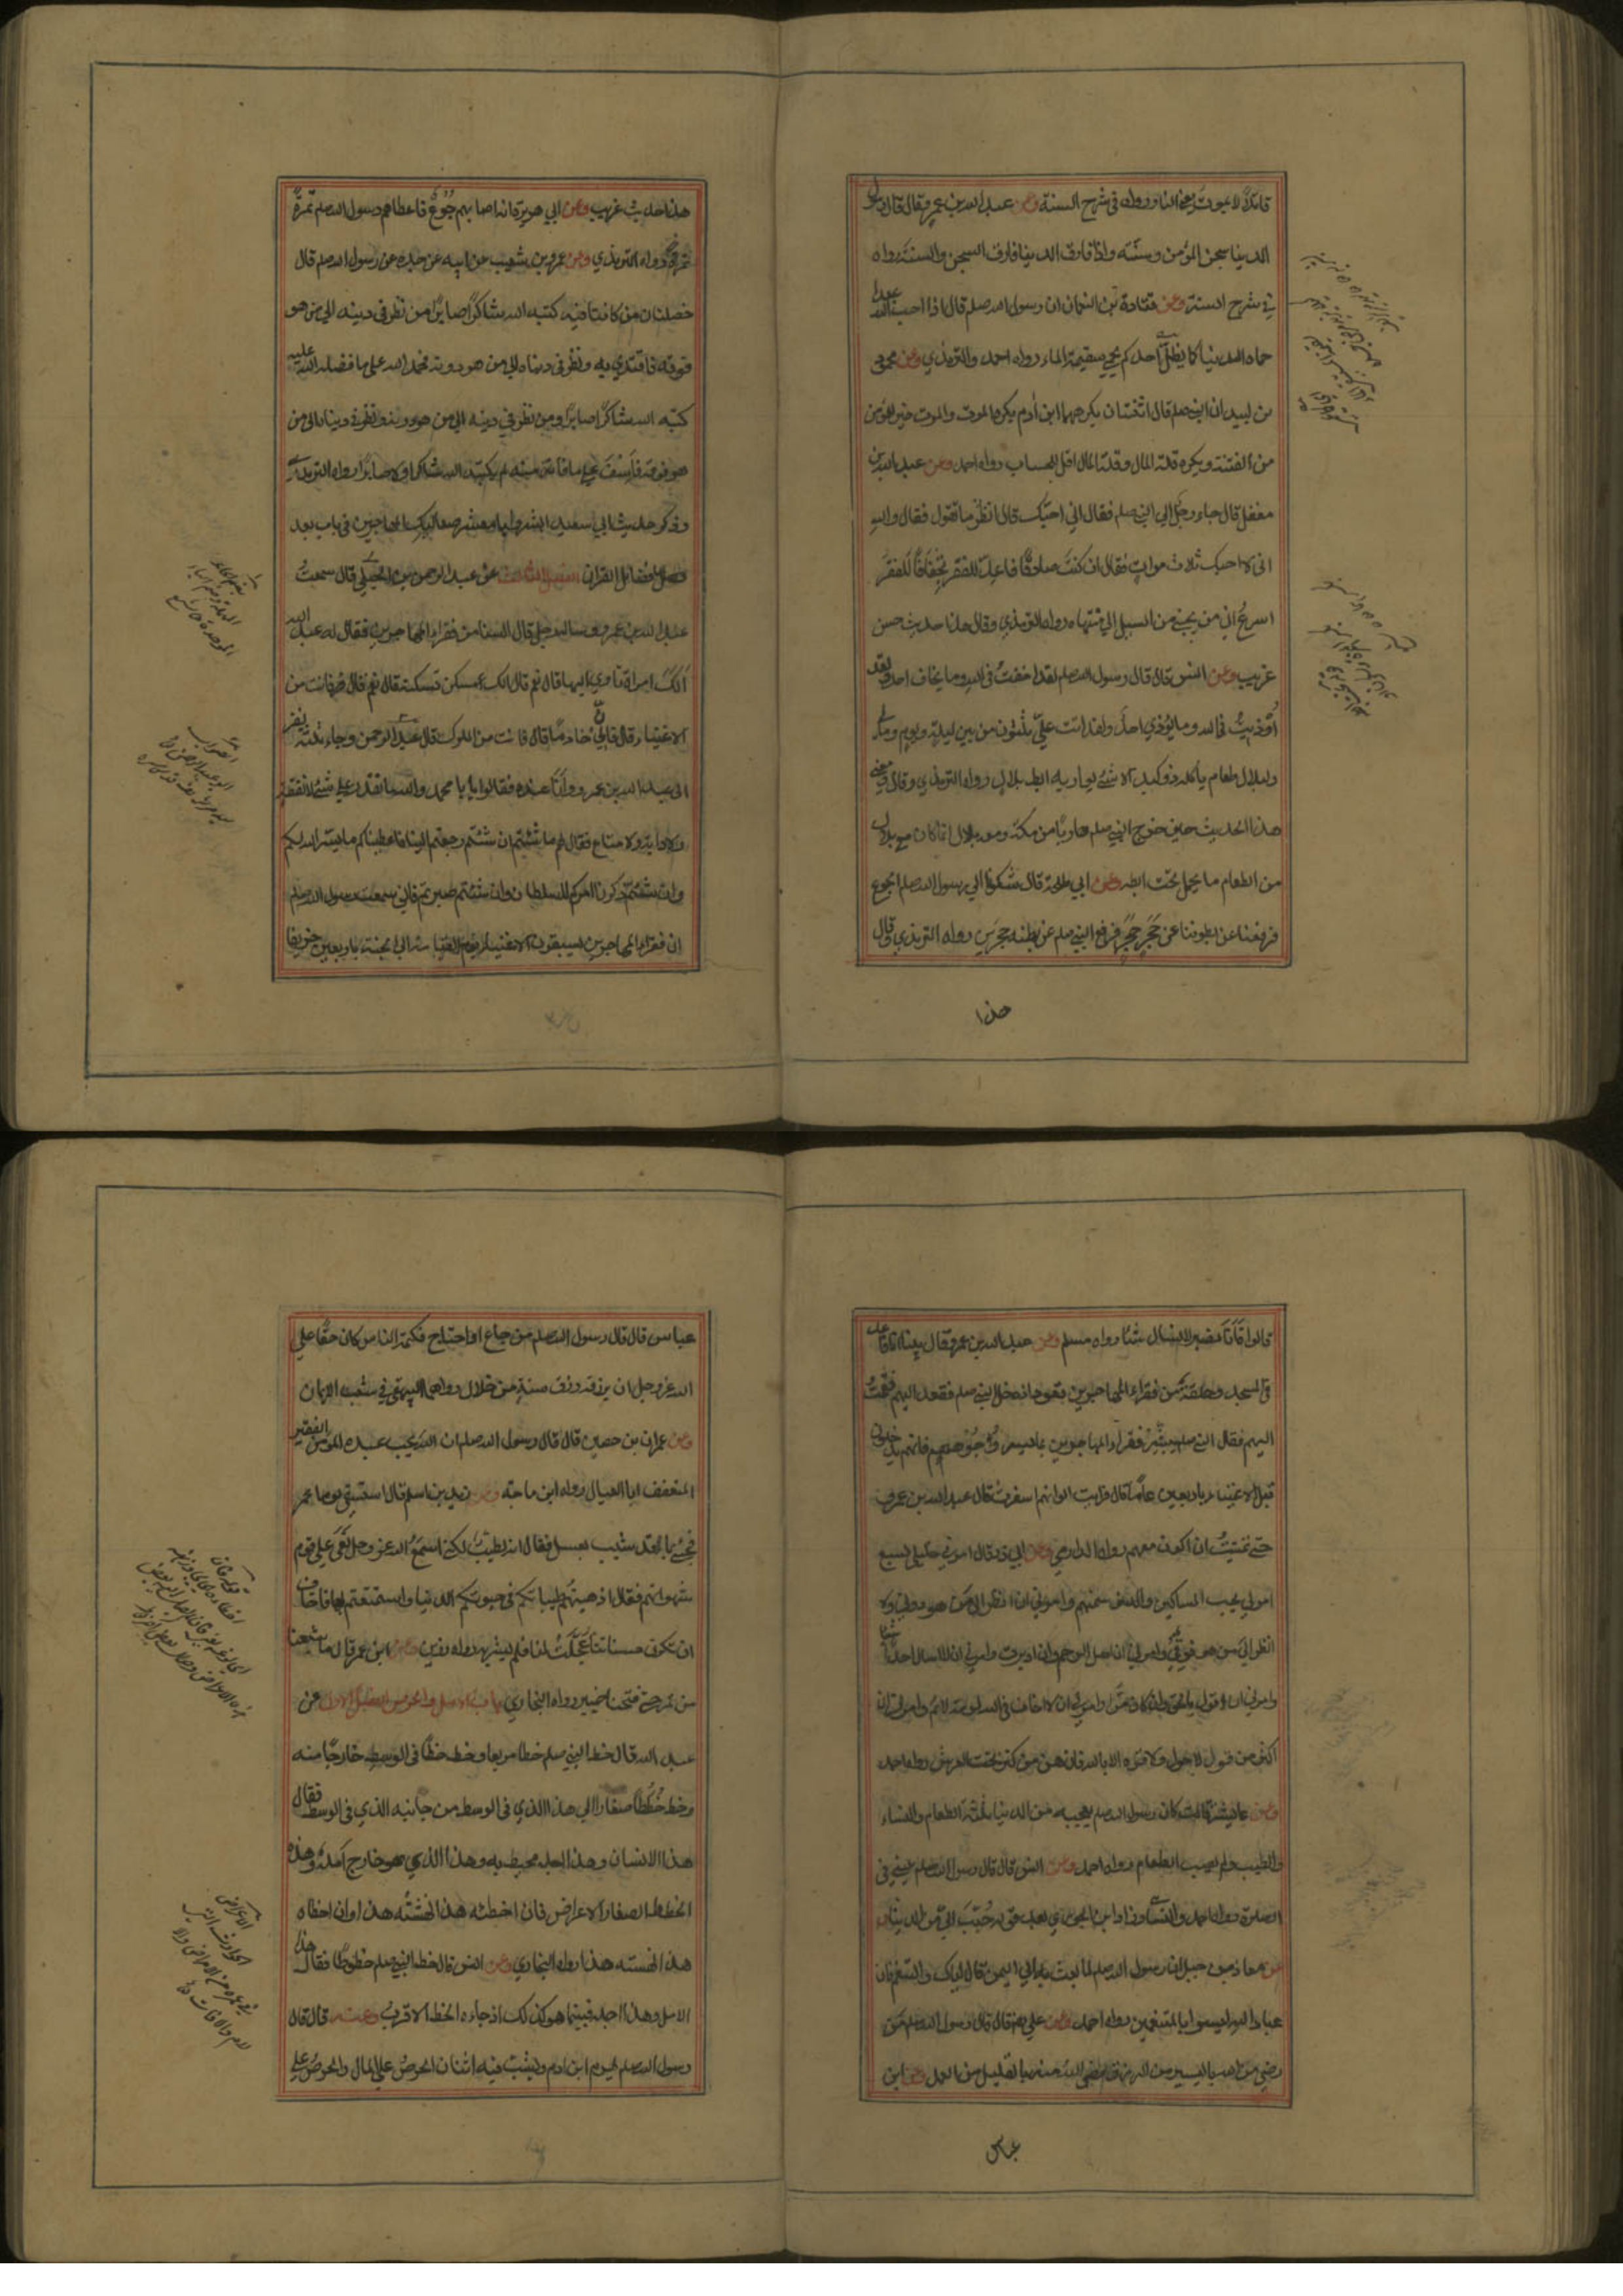 قاتلا لا يموت يعني النار رواه في شرح السنة وعن عبد الله بن عمرو قال قال رسول
الدنيا سجن المؤمن وسنته واذا فارق الدنيا فارق السجن والسنة رواه
في شرح السنة وعن قتادة بن النعمان ان رسول الله صلم قال اذا احب الله عبدا
حماه الدنيا كما يظل احدكم يحمي سقيمه الماء رواه احمد والترمذي وعن محمود
بن لبيد ان النبي صلم قال اثنتان يكرههما ابن آدم يكره الموت والموت خير للمؤمن
من الفتنة ويكره قلة المال وقلة المال اقل للحساب رواه احمد وعن عبد الله بن
مغفل قال جاء رجل الي النبي صلم فقال اني احبك قال انظر ما تقول فقال والله
اني لاحبك ثلاث مرات فقال ان كنت صادقا فاعد للفقر تجفافا للفقر
اسرع الي من يحبني من السيل الي منتهاه رواه الترمذي وقال هذا حديث حسن
غريب وعن انس قال قال رسول الله صلم لقد اخفت في الله وما يخاف احد ولقد
أوذيت في الله وما يؤذي احد ولقد اتت علي ثلثون من بين ليلة ويوم وما لي
ولبلال طعام ياكله ذو كبد الا شئ يواريه ابط بلال رواه الترمذي وقال ومعني
هذا الحديث حين خرج النبي صلم هاربا من مكة ومعه بلال انما كان مع بلال
من الطعام ما يحمل تحت ابطه وعن ابي طلحة قال شكونا الي رسول الله صلم الجوع
فرفعنا عن بطوننا عن حجر حجر فرفع النبي صلم عن بطنه حجرين رواه الترمذي وقال
هذا
هذا حديث غريب وعن ابي هريرة انه اصابهم جوع فاعطاهم رسول الله صلم تمرة
تمرة رواه الترمذي وعن عمرو بن شعيب عن ابيه عن جده عن رسول الله صلم قال
خصلتان من كانتا فيه كتبه الله شاكرا صابرا من نظر في دينه الي من هو
فوقه فاقتدي به ونظر في دنياه الي من هو دونه فحمد الله علي ما فضله الله عليه
كتبه الله شاكرا صابرا ومن نظر في دينه الي من هو دونه ونظر في دنياه الي من
هو فوقه فاسف علي ما فاته منه لم يكتبه الله شاكرا ولا صابرا رواه الترمذي
وذكر حديث ابي سعيد ابشروا يا معشر صعاليك المهاجرين في باب بعد
فضايل القرآن الفصل الثالث عن عبد الرحمن الحبلي قال سمعت
عبد الله بن عمرو وساله رجل قال السنا من فقراء المهاجرين فقال له عبد الله
الك امراة تاوي اليها قال نعم قال الك مسكن تسكنه قال نعم قال فانت من
الاغنياء قال فان لي خادما قال فانت من الملوك قال عبد الرحمن وجاء ثلثة نفر
الي عبد الله بن عمرو وانا عنده فقالوا يا با محمد والله ما نقدر علي شئ لا نفقة
ولا دابة ولا متاع فقال لهم ما شئتم ان شئتم رجعتم الينا فاعطيناكم ما يسر الله لكم
وان شئتم ذكرنا امركم للسلطان وان شئتم صبرتم فاني سمعت رسول الله صلم
ان فقراء المهاجرين يسبقون الاغنياء يوم القيامة الي الجنة باربعين خريفا
قالوا فانا نصبر لا نسال شيئا رواه مسلم وعن عبد الله بن عمرو قال بينا انا قاعد
في المسجد وحلقة من فقراء المهاجرين قعود اذ دخل النبي صلم فقعد اليهم فقمت
اليهم فقال النبي صلم ليبشر فقراء المهاجرين بما يسر وجوههم فانهم يدخلون
قبل الاغنياء باربعين عاما قال فرايت الوانهم اسفرت قال عبد الله بن عمرو
حتي تمنيت ان اكون معهم رواه الدارمي وعن ابي ذر قال امرني خليلي بسبع
امرني بحب المساكين والدنو منهم وامرني ان انظر الي من هو دوني ولا
انظر الي من هو فوقي وامرني ان اصل الرحم وان ادبرت وامرني ان لا اسال احدا شيئا
وامرني ان اقول بالحق وان كان مرا وامرني ان لا اخاف في الله لومة لائم وامرني ان
اكثر من قول لا حول ولا قوة الا بالله فانهن من كنز تحت العرش رواه احمد
وعن عايشة قالت كان رسول الله صلم يعجبه من الدنيا ثلثة الطعام والنساء
والطيب ولم يصب الطعام رواه احمد وعن انس قال قال رسول الله صلم
الصلوة رواه احمد والنسائي وزاد ابن الجوزي بعد قوله حبب الي من الدنيا
وعن معاذ بن جبل ان رسول الله صلم لما بعث به الي اليمن قال اياك والتنعم فان
عباد الله ليسوا بالمتنعمين رواه احمد وعن علي قال قال رسول الله صلم من
رضي من الله باليسير من الرزق رضي الله منه بالقليل من العمل وعن ابن
عباس
عباس قال قال رسول الله صلم من جاع او احتاج فكتمه الناس كان حقا علي
الله عز وجل ان يرزقه رزق سنة من حلال رواهما البيهقي في شعب الايمان
وعن عمران بن حصين قال قال رسول الله صلم ان الله يحب عبده المؤمن الفقير
المتعفف ابا العيال رواه ابن ماجة وعن زيد بن اسلم قال استسقي يوما عمر
فجئ بماء قد شيب بعسل فقال انه لطيب لكني اسمع الله عز وجل نعي علي قوم
شهواتهم فقال اذهبتم طيباتكم في حيوتكم الدنيا واستمتعتم بها فاخاف
ان تكون حسناتنا عجلت لنا فلم يشربه رواه رزين وعن ابن عمر قال ما شبعنا
من تمر حتي فتحنا خيبر رواه البخاري باب الامل والحرص الفصل الاول عن
عبد الله قال خط النبي صلم خطا مربعا وخط خطا في الوسط خارجا منه
وخط خططا صغارا الي هذا الذي في الوسط من جانبه الذي في الوسط فقال
هذا الانسان وهذا اجله محيط به وهذا الذي هو خارج امله وهذه
الخطط الصغار الاعراض فان اخطئه هذا نهشته هذا وان اخطاه
هذا نهسته هذا رواه البخاري وعن انس قال خط النبي صلم خطوطا فقال هذا
الامل وهذا اجله فبينما هو كذلك اذ جاءه الخط الاقرب وعنه قال قال
رسول الله صلم يهرم ابن ادم ويشب فيه اثنان الحرص علي المال والحرص علي